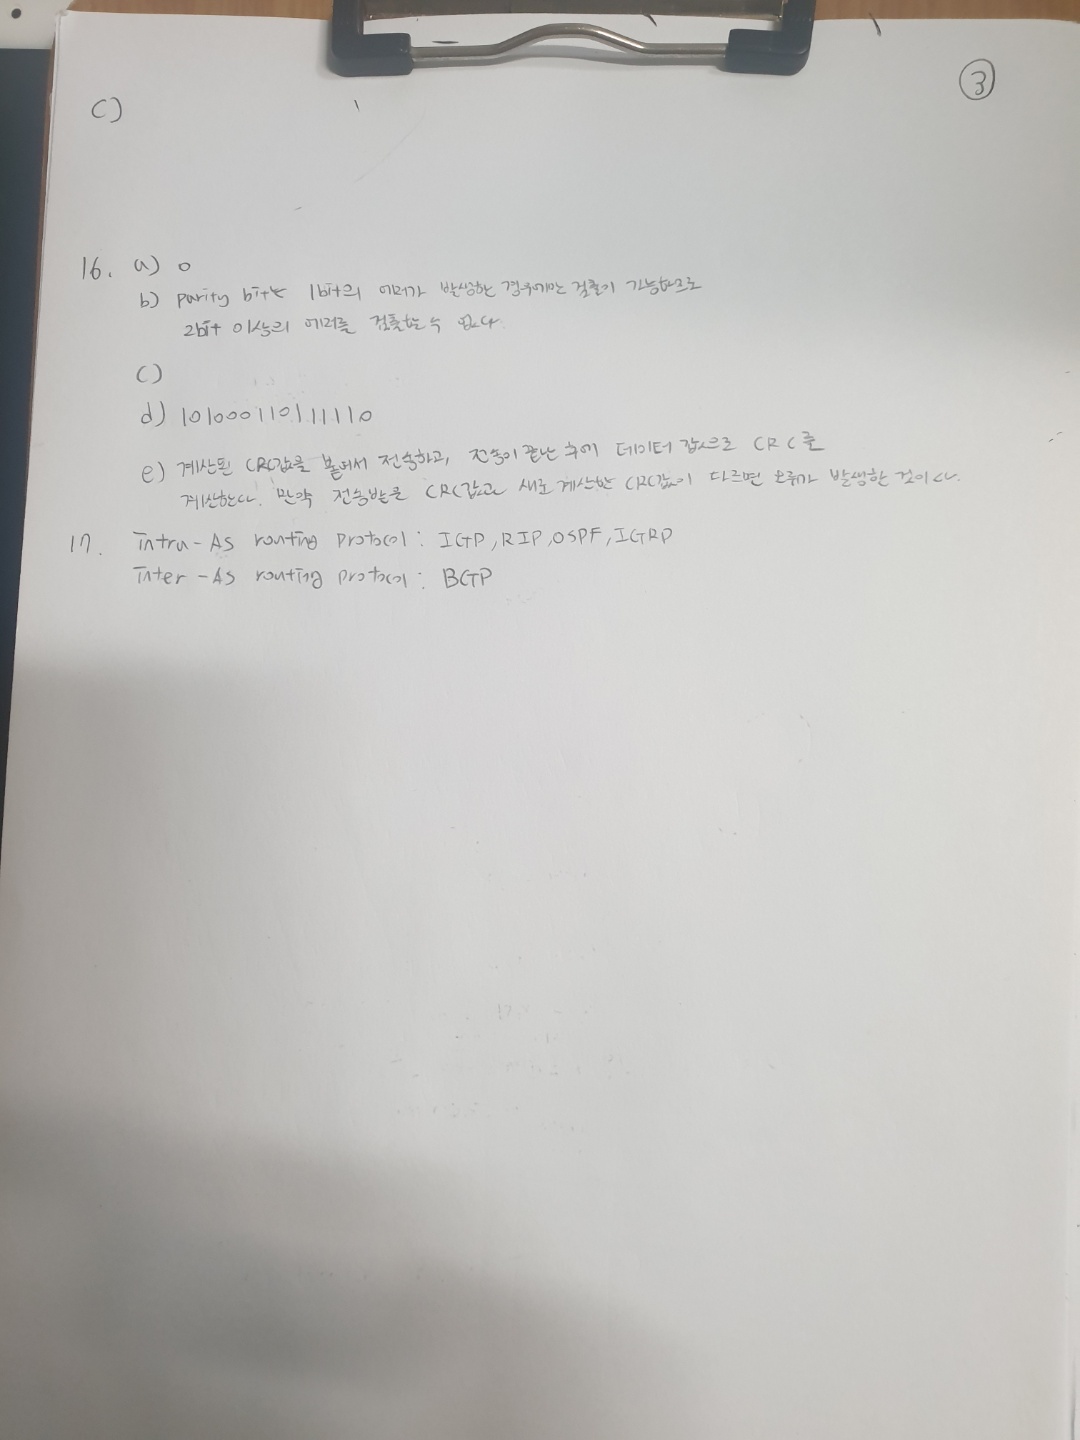 ③
C)
16. a) 0
b) parity bit는 1bit의 에러가 발생한 경우에만 검출이 가능하므로
2bit 이상의 에러를 검출할 수 없다.
C)
d) 101000110111110
e) 계산된 CRC값을 붙여서 전송하고, 전송이 끝난 후에 데이터 값으로 CRC를
계산한다. 만약 전송받은 CRC값과 새로 계산한 CRC값이 다르면 오류가 발생한 것이다.
17. intra-AS routing protocol : IGP, RIP, OSPF, IGRP
inter-AS routing protocol : BGP